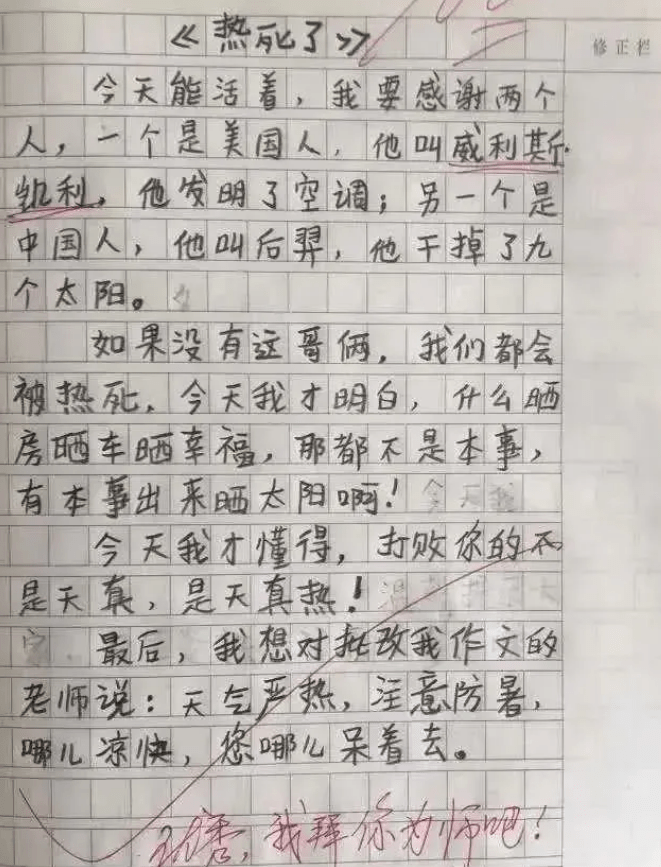 《热死了》
修正栏
今天能活着，我要感谢两个
人，一个是美国人，他叫威利斯·
凯利，他发明了空调；另一个是
中国人，他叫后羿，他干掉了九
个太阳。
如果没有这哥俩，我们都会
被热死，今天我才明白，什么晒
房晒车晒幸福，那都不是本事，
有本事出来晒太阳啊！
今天我才懂得，打败你的不
是天真，是天真热！
最后，我想对批改我作文的
老师说：天气严热，注意防暑，
哪儿凉快，您哪儿呆着去。
我拜你为师吧！